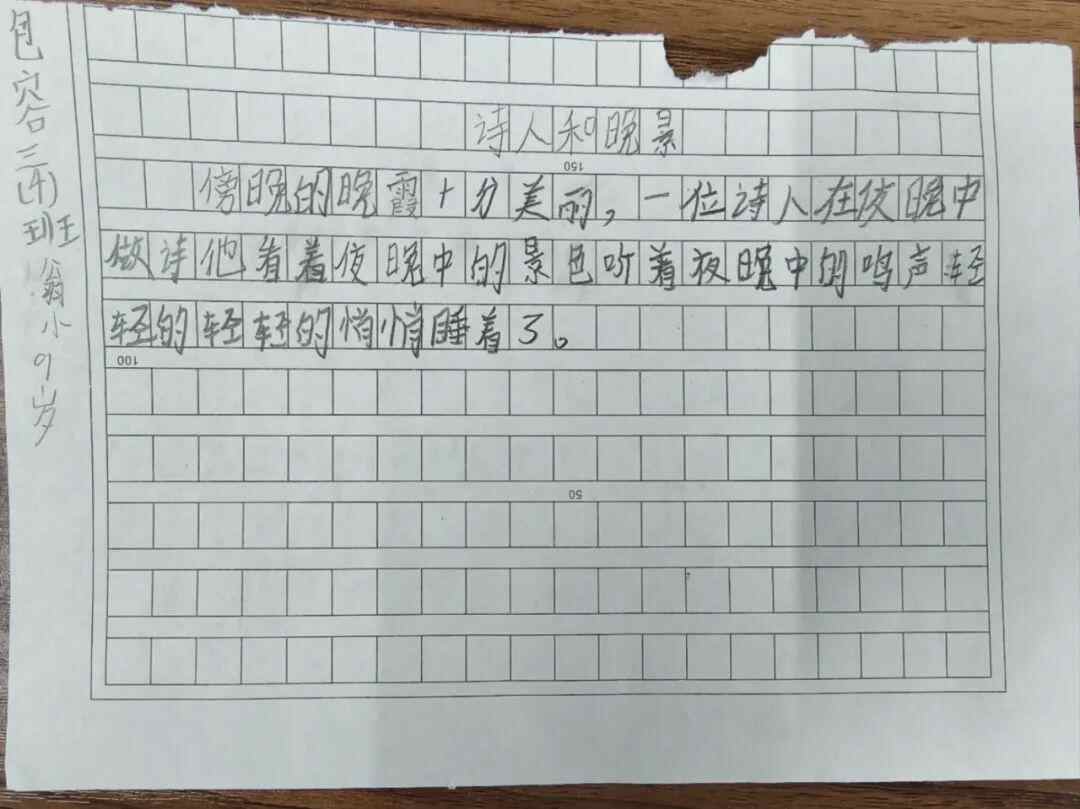 诗人和晚景
150
傍晚的晚霞十分美丽，一位诗人在夜晚中
做诗他看着夜晚中的景色听着夜晚中的鸣声轻
轻的轻轻的悄悄睡着了。
100
50
包容三(4)班翁小9岁